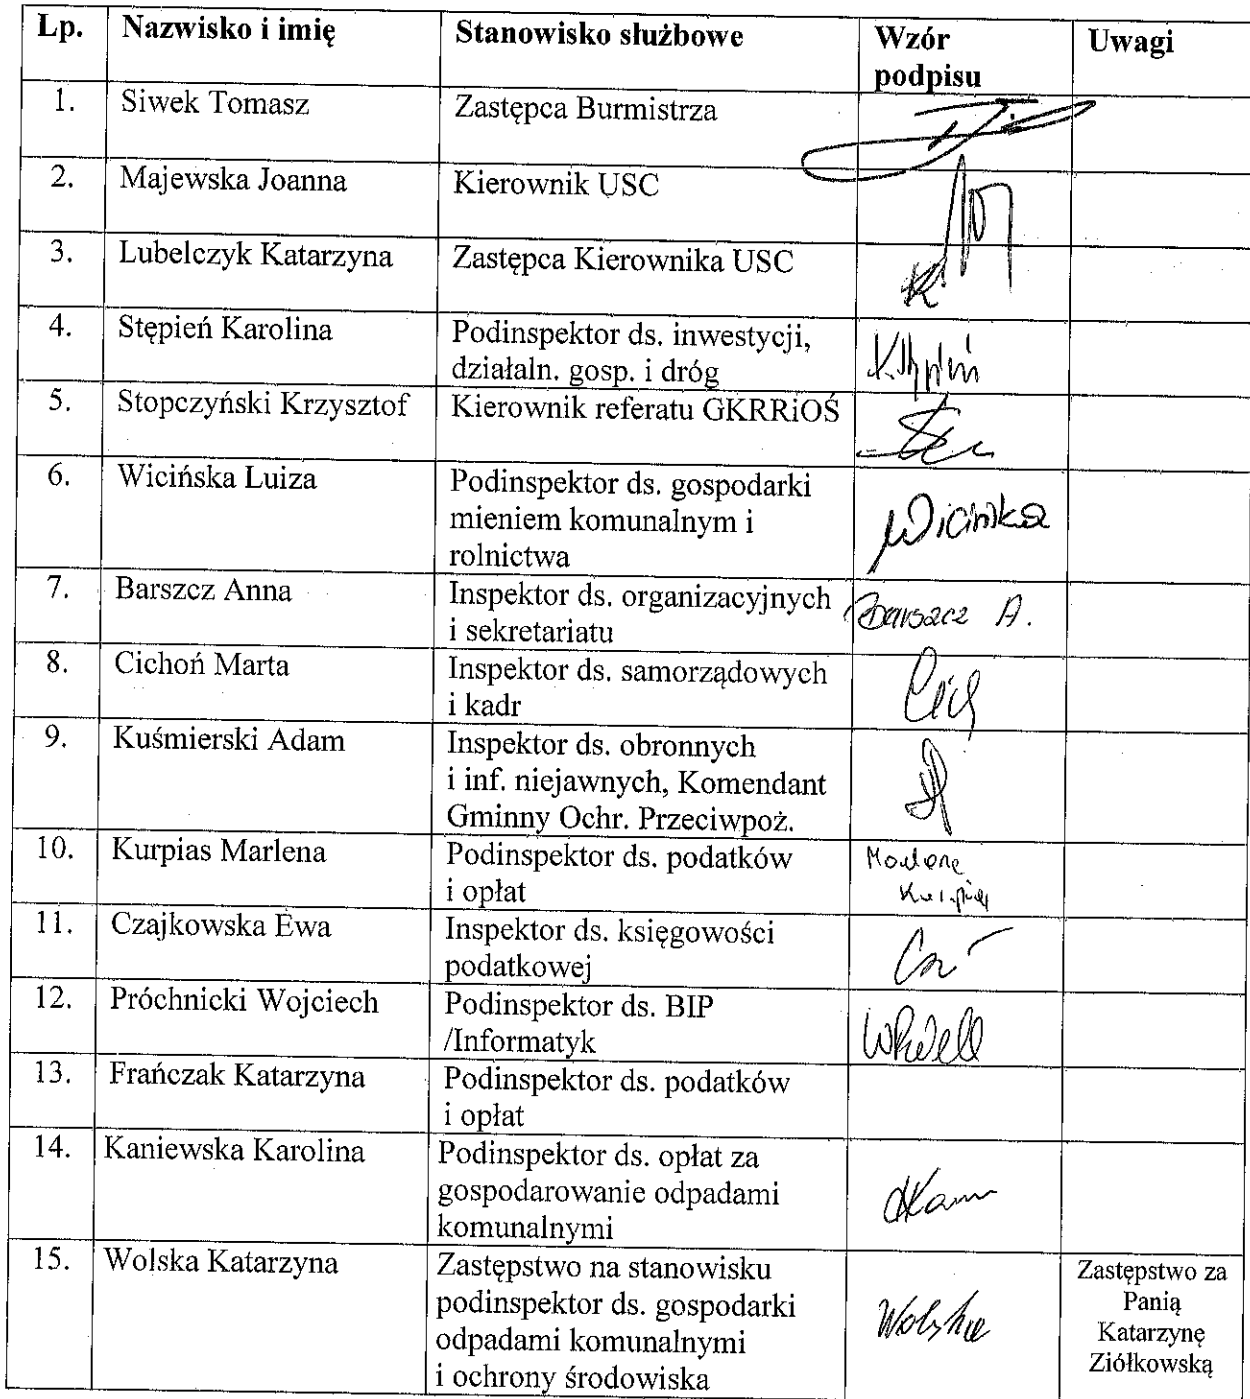 Lp. Nazwisko i imię Stanowisko służbowe Wzór Uwagi
podpisu
1. Siwek Tomasz Zastępca Burmistrza
2. Majewska Joanna Kierownik USC
3. Lubelczyk Katarzyna Zastępca Kierownika USC
4. Stępień Karolina Podinspektor ds. inwestycji,
działaln. gosp. i dróg
5. Stopczyński Krzysztof Kierownik referatu GKRRiOŚ
6. Wicińska Luiza Podinspektor ds. gospodarki
mieniem komunalnym i
rolnictwa
7. Barszcz Anna Inspektor ds. organizacyjnych Barszcz A.
i sekretariatu
8. Cichoń Marta Inspektor ds. samorządowych
i kadr
9. Kuśmierski Adam Inspektor ds. obronnych
i inf. niejawnych, Komendant
Gminny Ochr. Przeciwpoż.
10. Kurpias Marlena Podinspektor ds. podatków
i opłat
11. Czajkowska Ewa Inspektor ds. księgowości
podatkowej
12. Próchnicki Wojciech Podinspektor ds. BIP
/Informatyk
13. Frańczak Katarzyna Podinspektor ds. podatków
i opłat
14. Kaniewska Karolina Podinspektor ds. opłat za
gospodarowanie odpadami
komunalnymi
15. Wolska Katarzyna Zastępstwo na stanowisku
podinspektor ds. gospodarki
odpadami komunalnymi
i ochrony środowiska
Zastępstwo za
Panią
Katarzynę
Ziółkowską